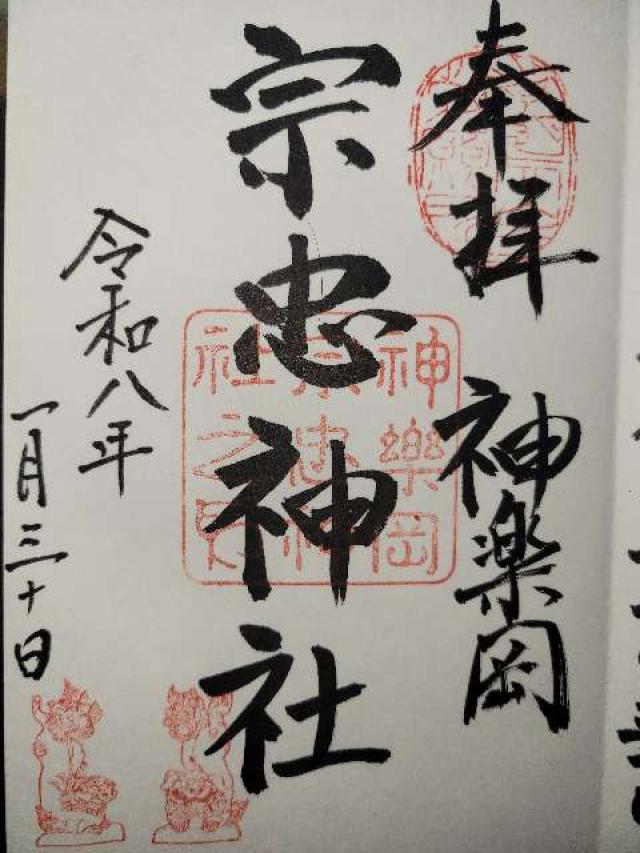 奉拝
神楽岡
宗忠神社
神樂岡
宗忠神
社之印
令和八年
一月三十日